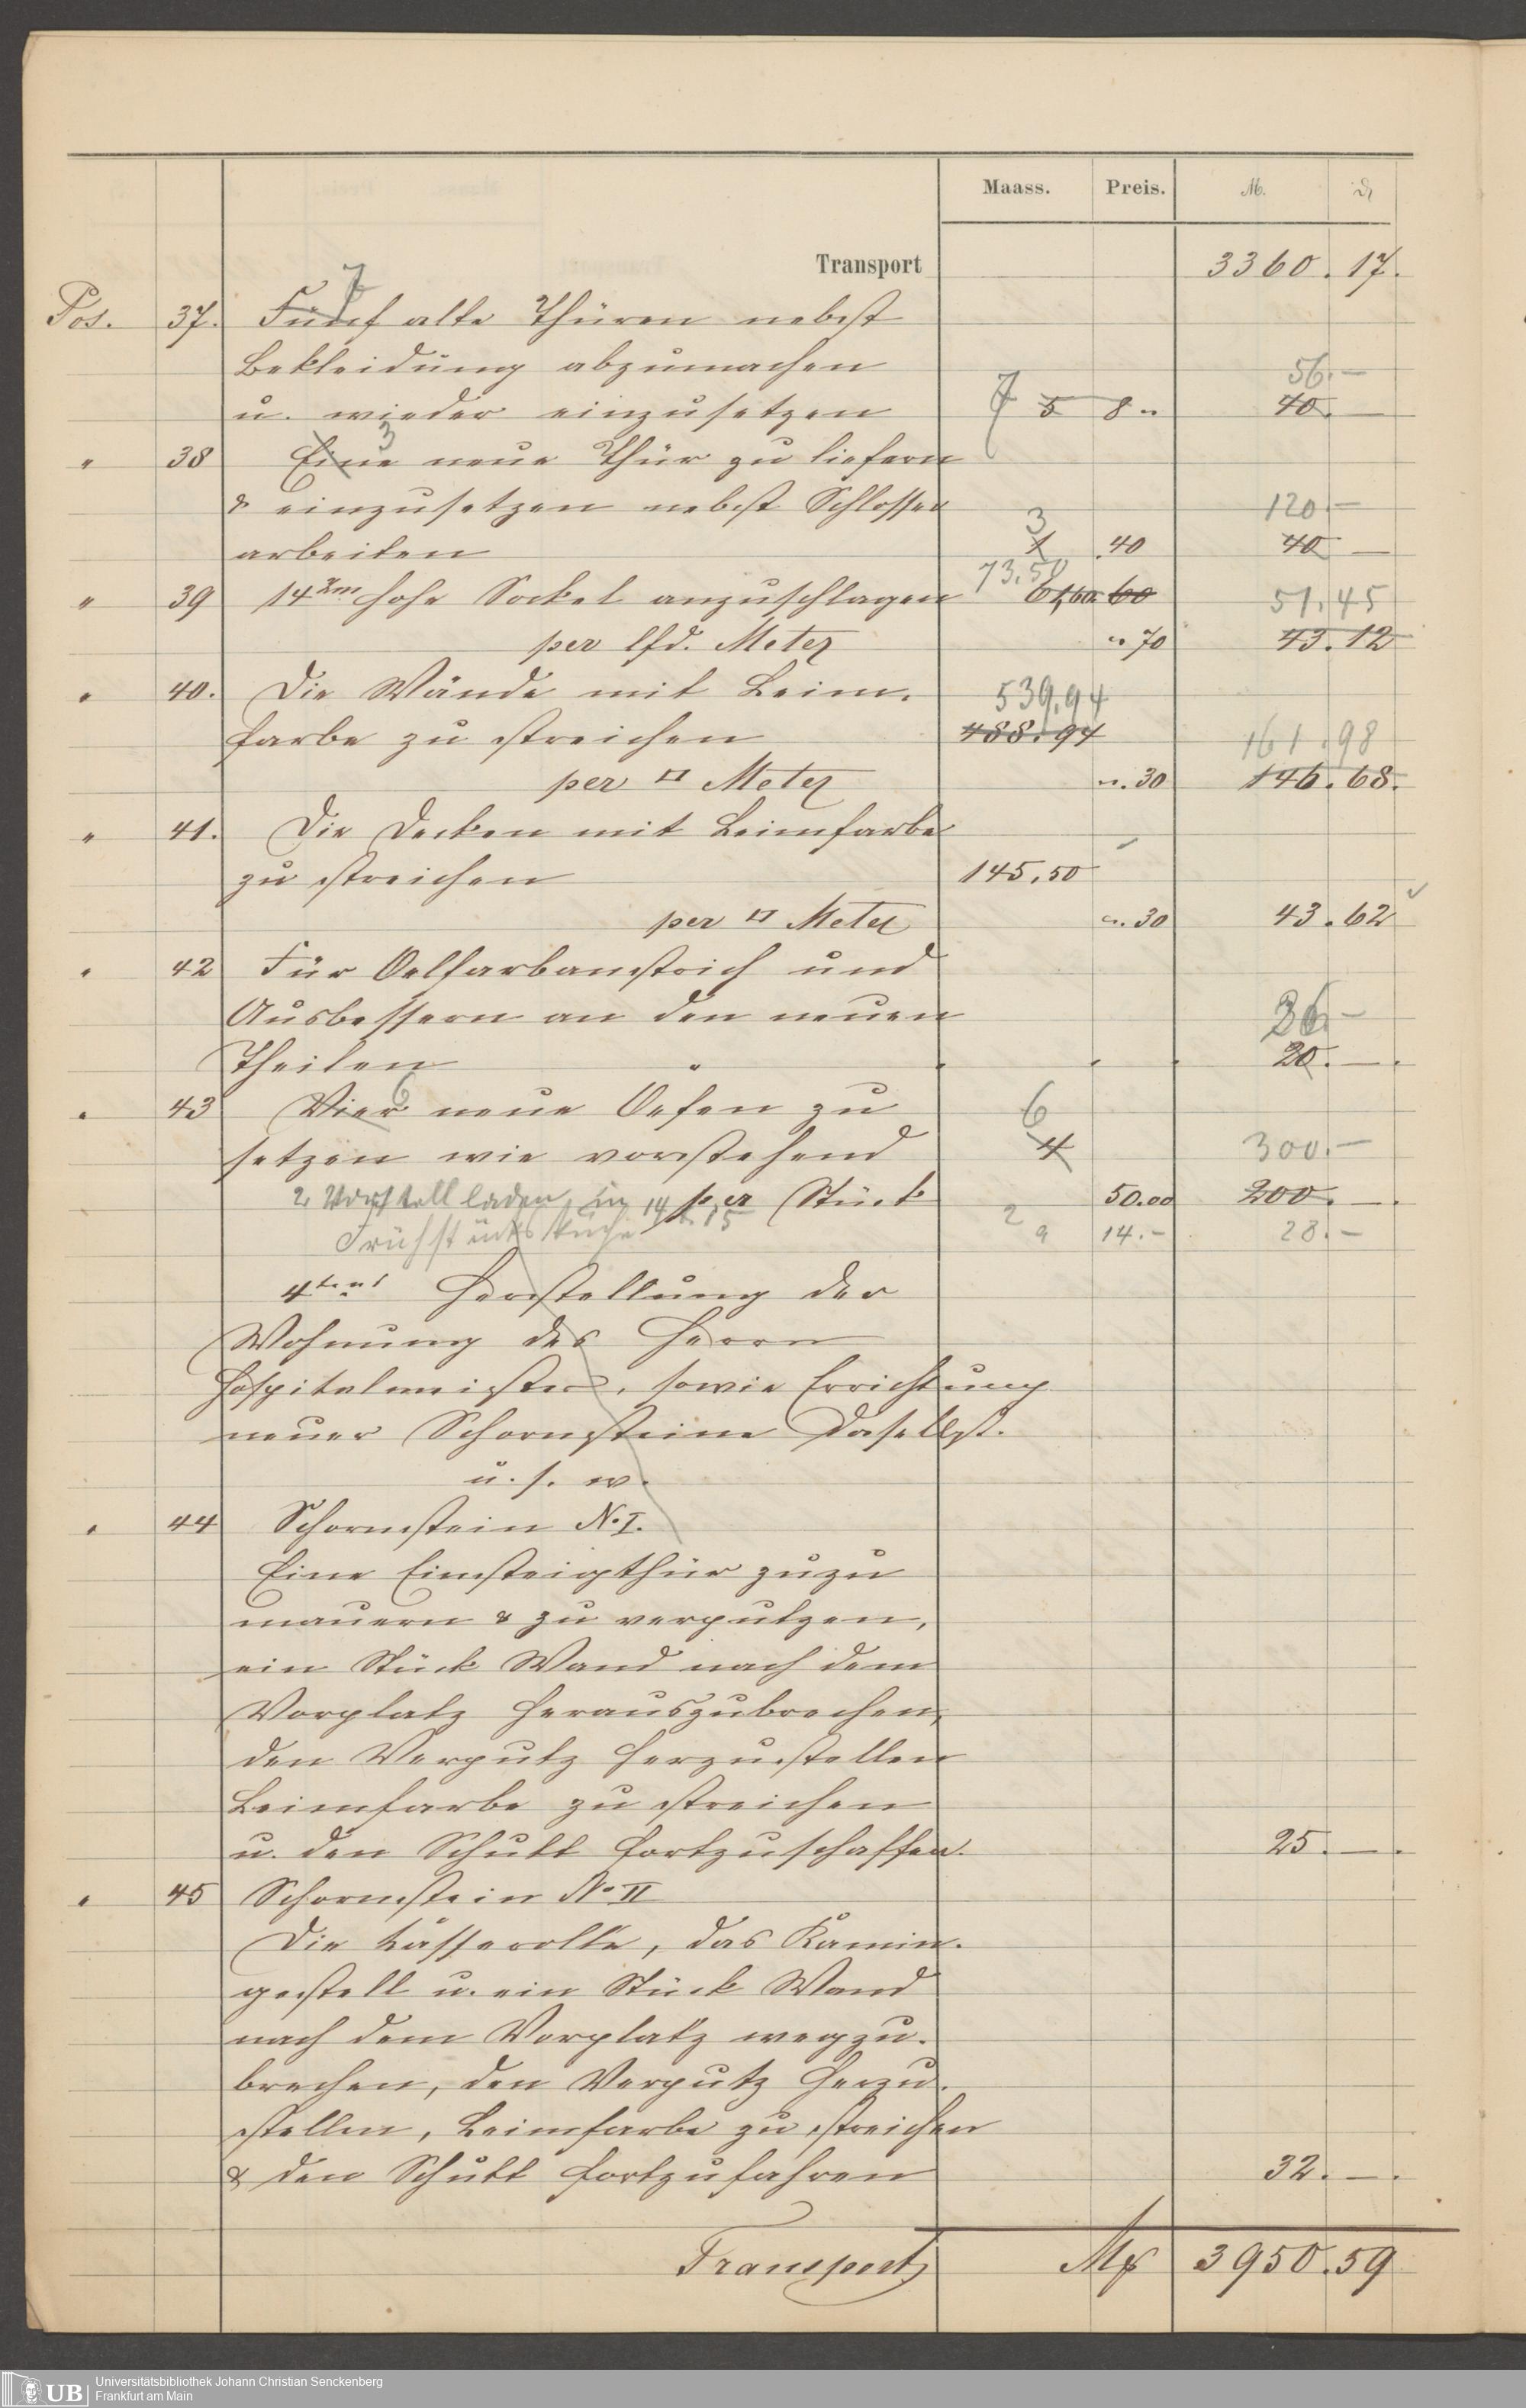 Maass. Preis. M. ₰
Transport 3360. 17.
7
Pos. 37. Fünf alte Thüren nebst
Bekleidung abzumachen 56.—
u. wieder einzusetzen 7 5 8 „ 40. —
3
„ 38 Eine neue Thür zu liefern
& einzusetzen nebst Schlosser 3 120.—
arbeiten 1 40 40 —
73,50
„ 39 14 hohe Sockel anzuschlagen 61,60 60 51.45
per lfd. Meter „ 70 43.12
„ 40. Die Wände mit Leim- 539,94
farbe zu streichen 488.94 161.98
per □ Meter „.30 146.68.
„ 41. Die Decken mit Leimfarbe
zu streichen 145,50
per □ Meter „.30 43.62
„ 42 Für Oelfarbanstrich und
Ausbessern an den neuen 36 —
Theilen 20. —.
6
„ 43 Vier neue Oefen zu 6
setzen wie vorstehend 4 300.—
2 Vorstellladen in 14 & 15 per Stück 50.00 200. —.
Frühstücksküche 2 a 14.— 28.—
4tens Herstellung der
Wohnung des Herrn
Hospitalmeister, sowie Errichtung
neuer Schornsteine daselbst.
u. s. w.
„ 44 Schornstein No. I.
Eine Einsteigthür zuzu
mauern & zu verputzen,
ein Stück Wand nach dem
Vorplatz herauszubrechen,
den Verputz herzustellen
Leimfarbe zu streichen
u. den Schutt fortzuschaffen. 25. —.
„ 45 Schornstein No II
Die Kasserolle, das Kamin-
gestell u. ein Stück Wand
nach dem Vorplatz wegzu-
brechen, den Verputz herzu-
stellen, Leimfarbe zu streichen
& den Schutt fortzufahren 32. —.
Transport M 3950.59
UB Universitätsbibliothek Johann Christian Senckenberg
Frankfurt am Main